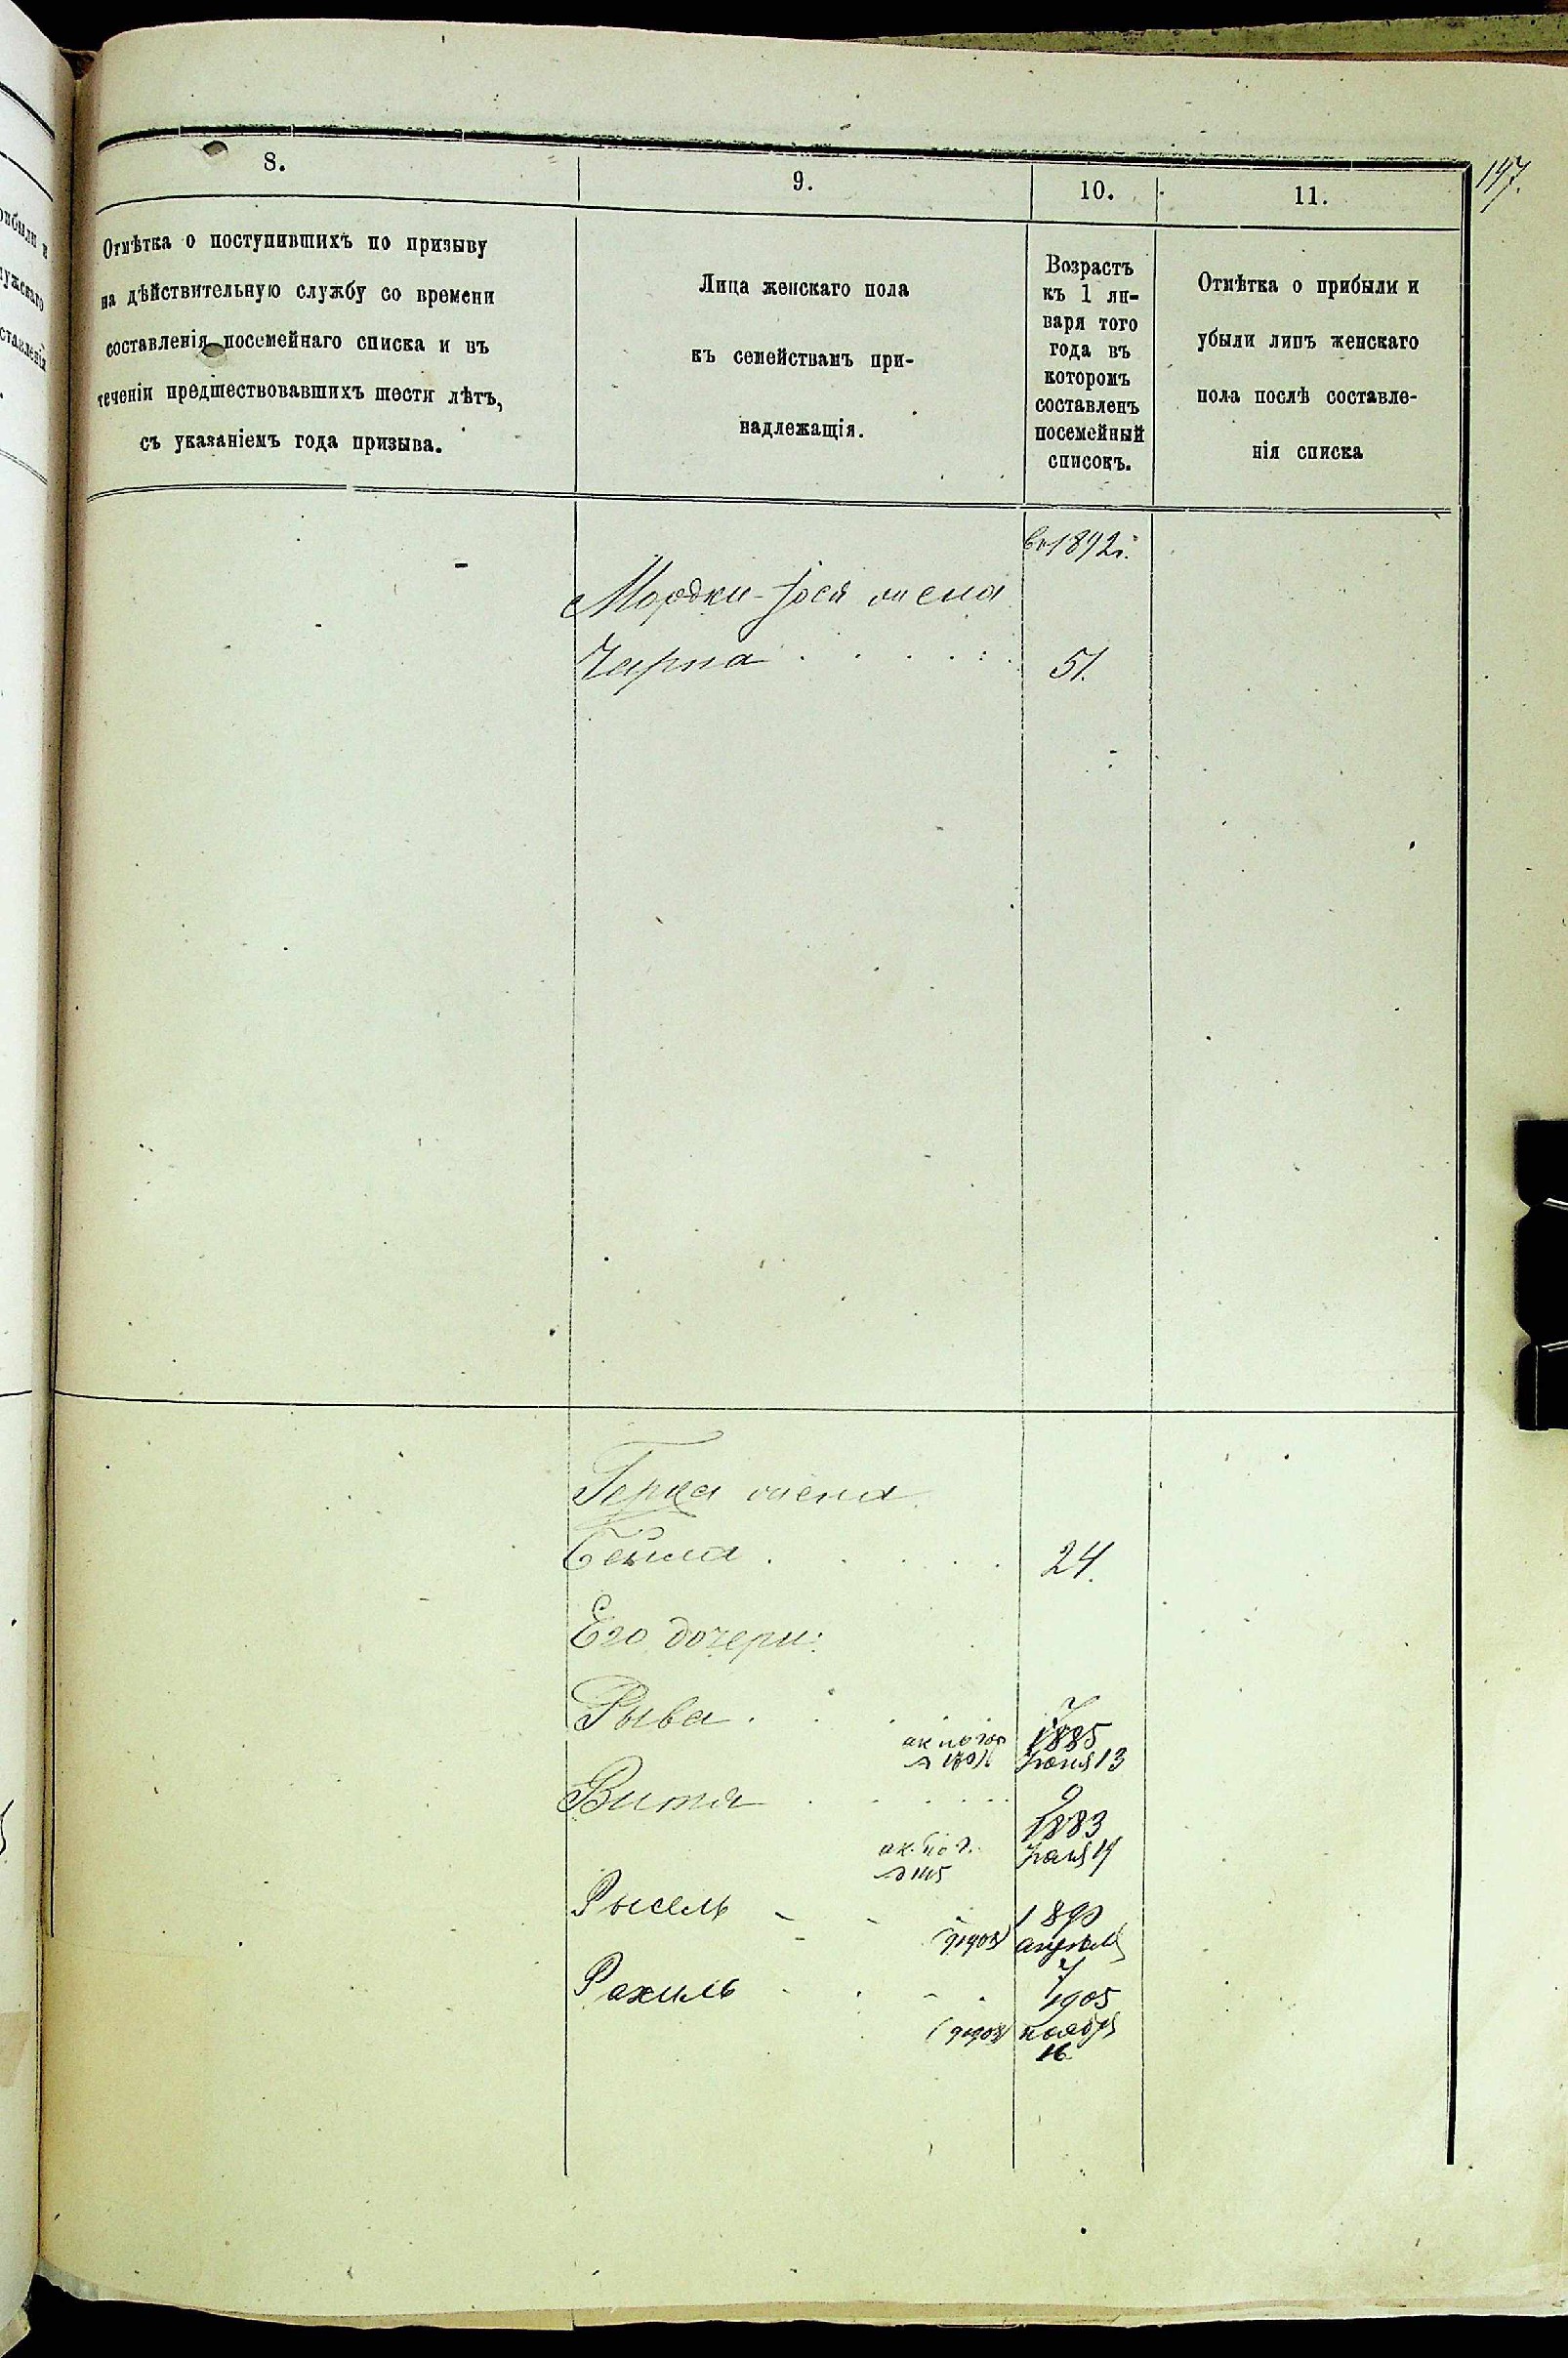 197.
8.
9.
10.
11.
Отмѣтка о поступившихъ по призыву
на дѣйствительную службу со времени
составленія посемейнаго списка и въ
теченіи предшествовавшихъ шести лѣтъ,
съ указаніемъ года призыва.
Лица женскаго пола
къ семействамъ при-
надлежащія.
Возрастъ
къ 1 ян-
варя того
года въ
которомъ
составленъ
посемейный
списокъ.
Отмѣтка о прибыли и
убыли лицъ женскаго
пола послѣ составле-
нія списка
въ 1892 г.
Мордки-Іося жена
Чарна 51.
Герца жена
Бейла 24.
Его дочери:
Рыва 7
1885
Іюня 13
Витя 9
1883
14
Рысель 1890
апрѣля
7
Рахиль 1905
ноября
16